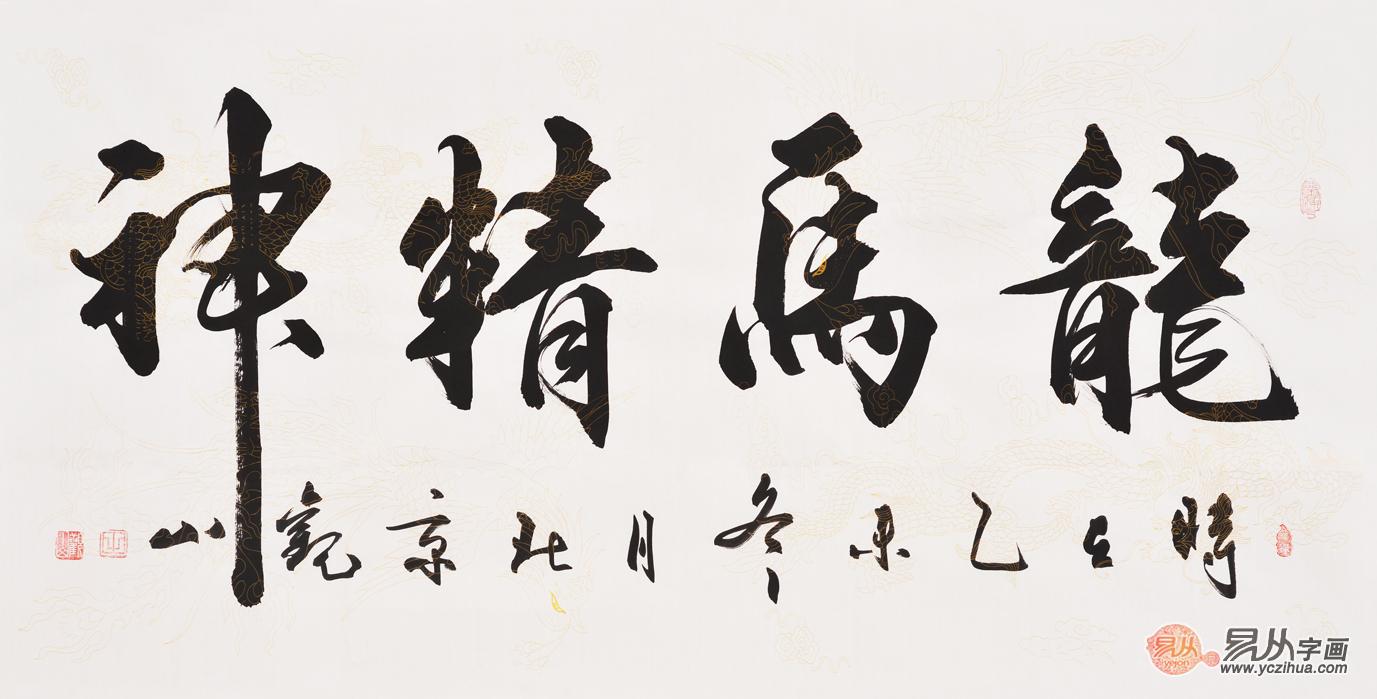 龍馬精神
時在乙未冬月北京觀山
易从
yejon
易从字画
www.yczihua.com